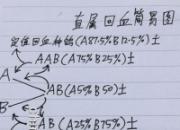 直属回血简易图
定值回血种鸽(A87.5%B12.5%)士
AAB(A75%B25%)士
A
AB(A50%B50)士
B
AB(A25%B75%)士